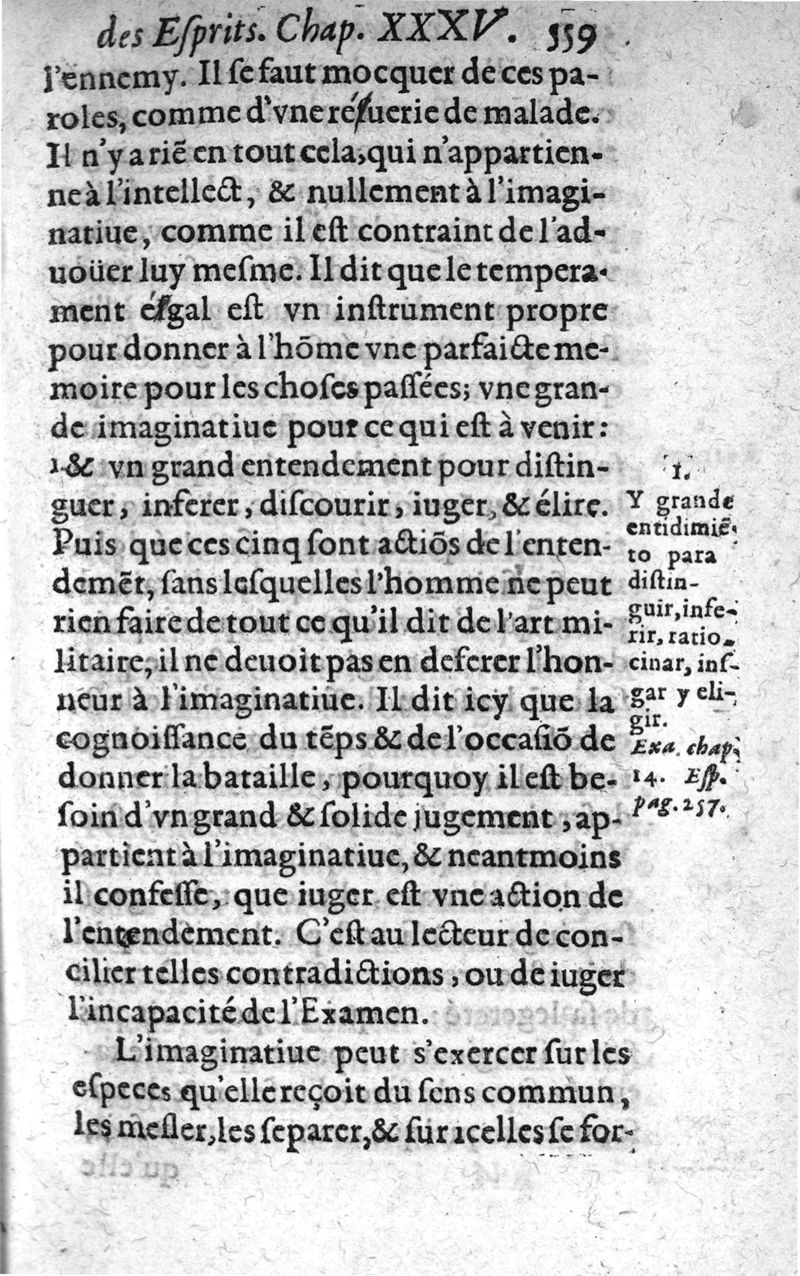 des Eſprits. Chap. XXXV. 559
l'ennemy. Il ſe faut mocquer de ces pa-
roles, comme d'vne réſuerie de malade.
Il n'y a riẽ en tout cela, qui n'appartien-
ne à l'intellect, & nullement à l'imagi-
natiue, comme il eſt contraint de l'ad-
uoüer luy meſme. Il dit que le tempera-
ment éſgal eſt vn inſtrument propre
pour donner à l'hõme vne parfaicte me-
moire pour les choſes paſſées; vne gran-
de imaginatiue pour ce qui eſt à venir:
1 & vn grand entendement pour diſtin-
guer, inferer, diſcourir, iuger, & élire.
Puis que ces cinq ſont actiõs de l'enten-
demẽt, ſans leſquelles l'homme ne peut
rien faire de tout ce qu'il dit de l'art mi-
litaire, il ne deuoit pas en deferer l'hon-
neur à l'imaginatiue. Il dit icy que la
cognoiſſance du tẽps & de l'occaſiõ de
donner la bataille, pourquoy il eſt be-
ſoin d'vn grand & ſolide jugement, ap-
partient à l'imaginatiue, & neantmoins
il confeſſe, que iuger eſt vne action de
l'entendement. C'eſt au lecteur de con-
cilier telles contradictions, ou de iuger
l'incapacité de l'Examen.
L'imaginatiue peut s'exercer ſur les
eſpeces qu'elle reçoit du ſens commun,
les meſler, les ſeparer, & ſur icelles ſe for-
1.
Y grande
entidimiẽ-
to para
diſtin-
guir, infe-
rir, ratio-
cinar, inſ-
gar y eli-
gir.
Exa. chap.
14. Eſp.
pag. 257.